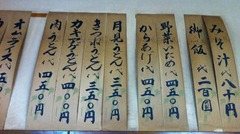 みそ汁 代 八十円
御飯 代 二百円
野菜いため 代 四五〇
からあげ 代 四五〇
月見うどん 代 三五〇
きつねうどん 代 三五〇
カキアゲうどん 代 四五〇
肉うどん 代 四五〇
オムライス 代 五五〇